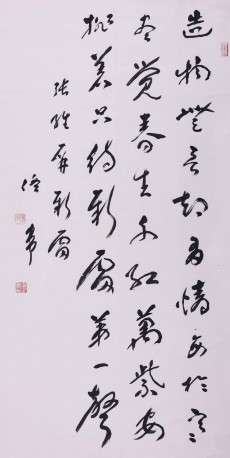 造物無言却有情每於寒
盡覺春生千紅萬紫安
排着只待新雷第一聲
張維屏新雷